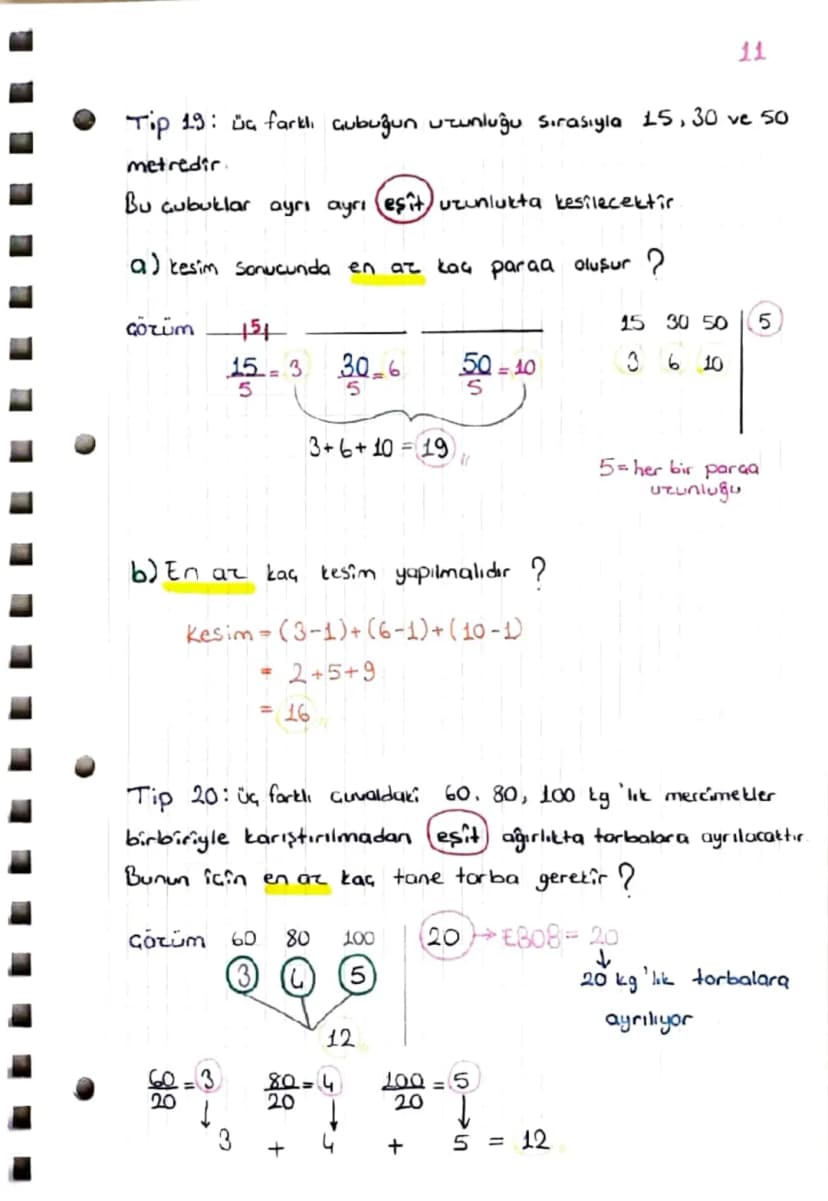 11
Tip 19: üç farklı çubuğun uzunluğu sırasıyla 15, 30 ve 50
metredir.
Bu çubuklar ayrı ayrı eşit uzunlukta kesilecektir
a) kesim sonucunda en az kaç parça oluşur ?
Çözüm 5
15/5 = 3 30/5 = 6 50/5 = 10
3+6+10 = 19
15 30 50 | 5
3 6 10
5 = her bir parça
uzunluğu
b) En az kaç kesim yapılmalıdır ?
Kesim = (3-1)+(6-1)+(10-1)
= 2+5+9
= 16
Tip 20: üç farklı çuvaldaki 60, 80, 100 kg'lık mercimekler
birbiriyle karıştırılmadan eşit ağırlıkta torbalara ayrılacaktır.
Bunun için en az kaç tane torba gerekir ?
Çözüm 60 80 100 | 20 → EBOB = 20
3 4 5
↓
20 kg'lık torbalara
ayrılıyor
12
60/20 = 3 80/20 = 4 100/20 = 5
↓ ↓ ↓
3 + 4 + 5 = 12